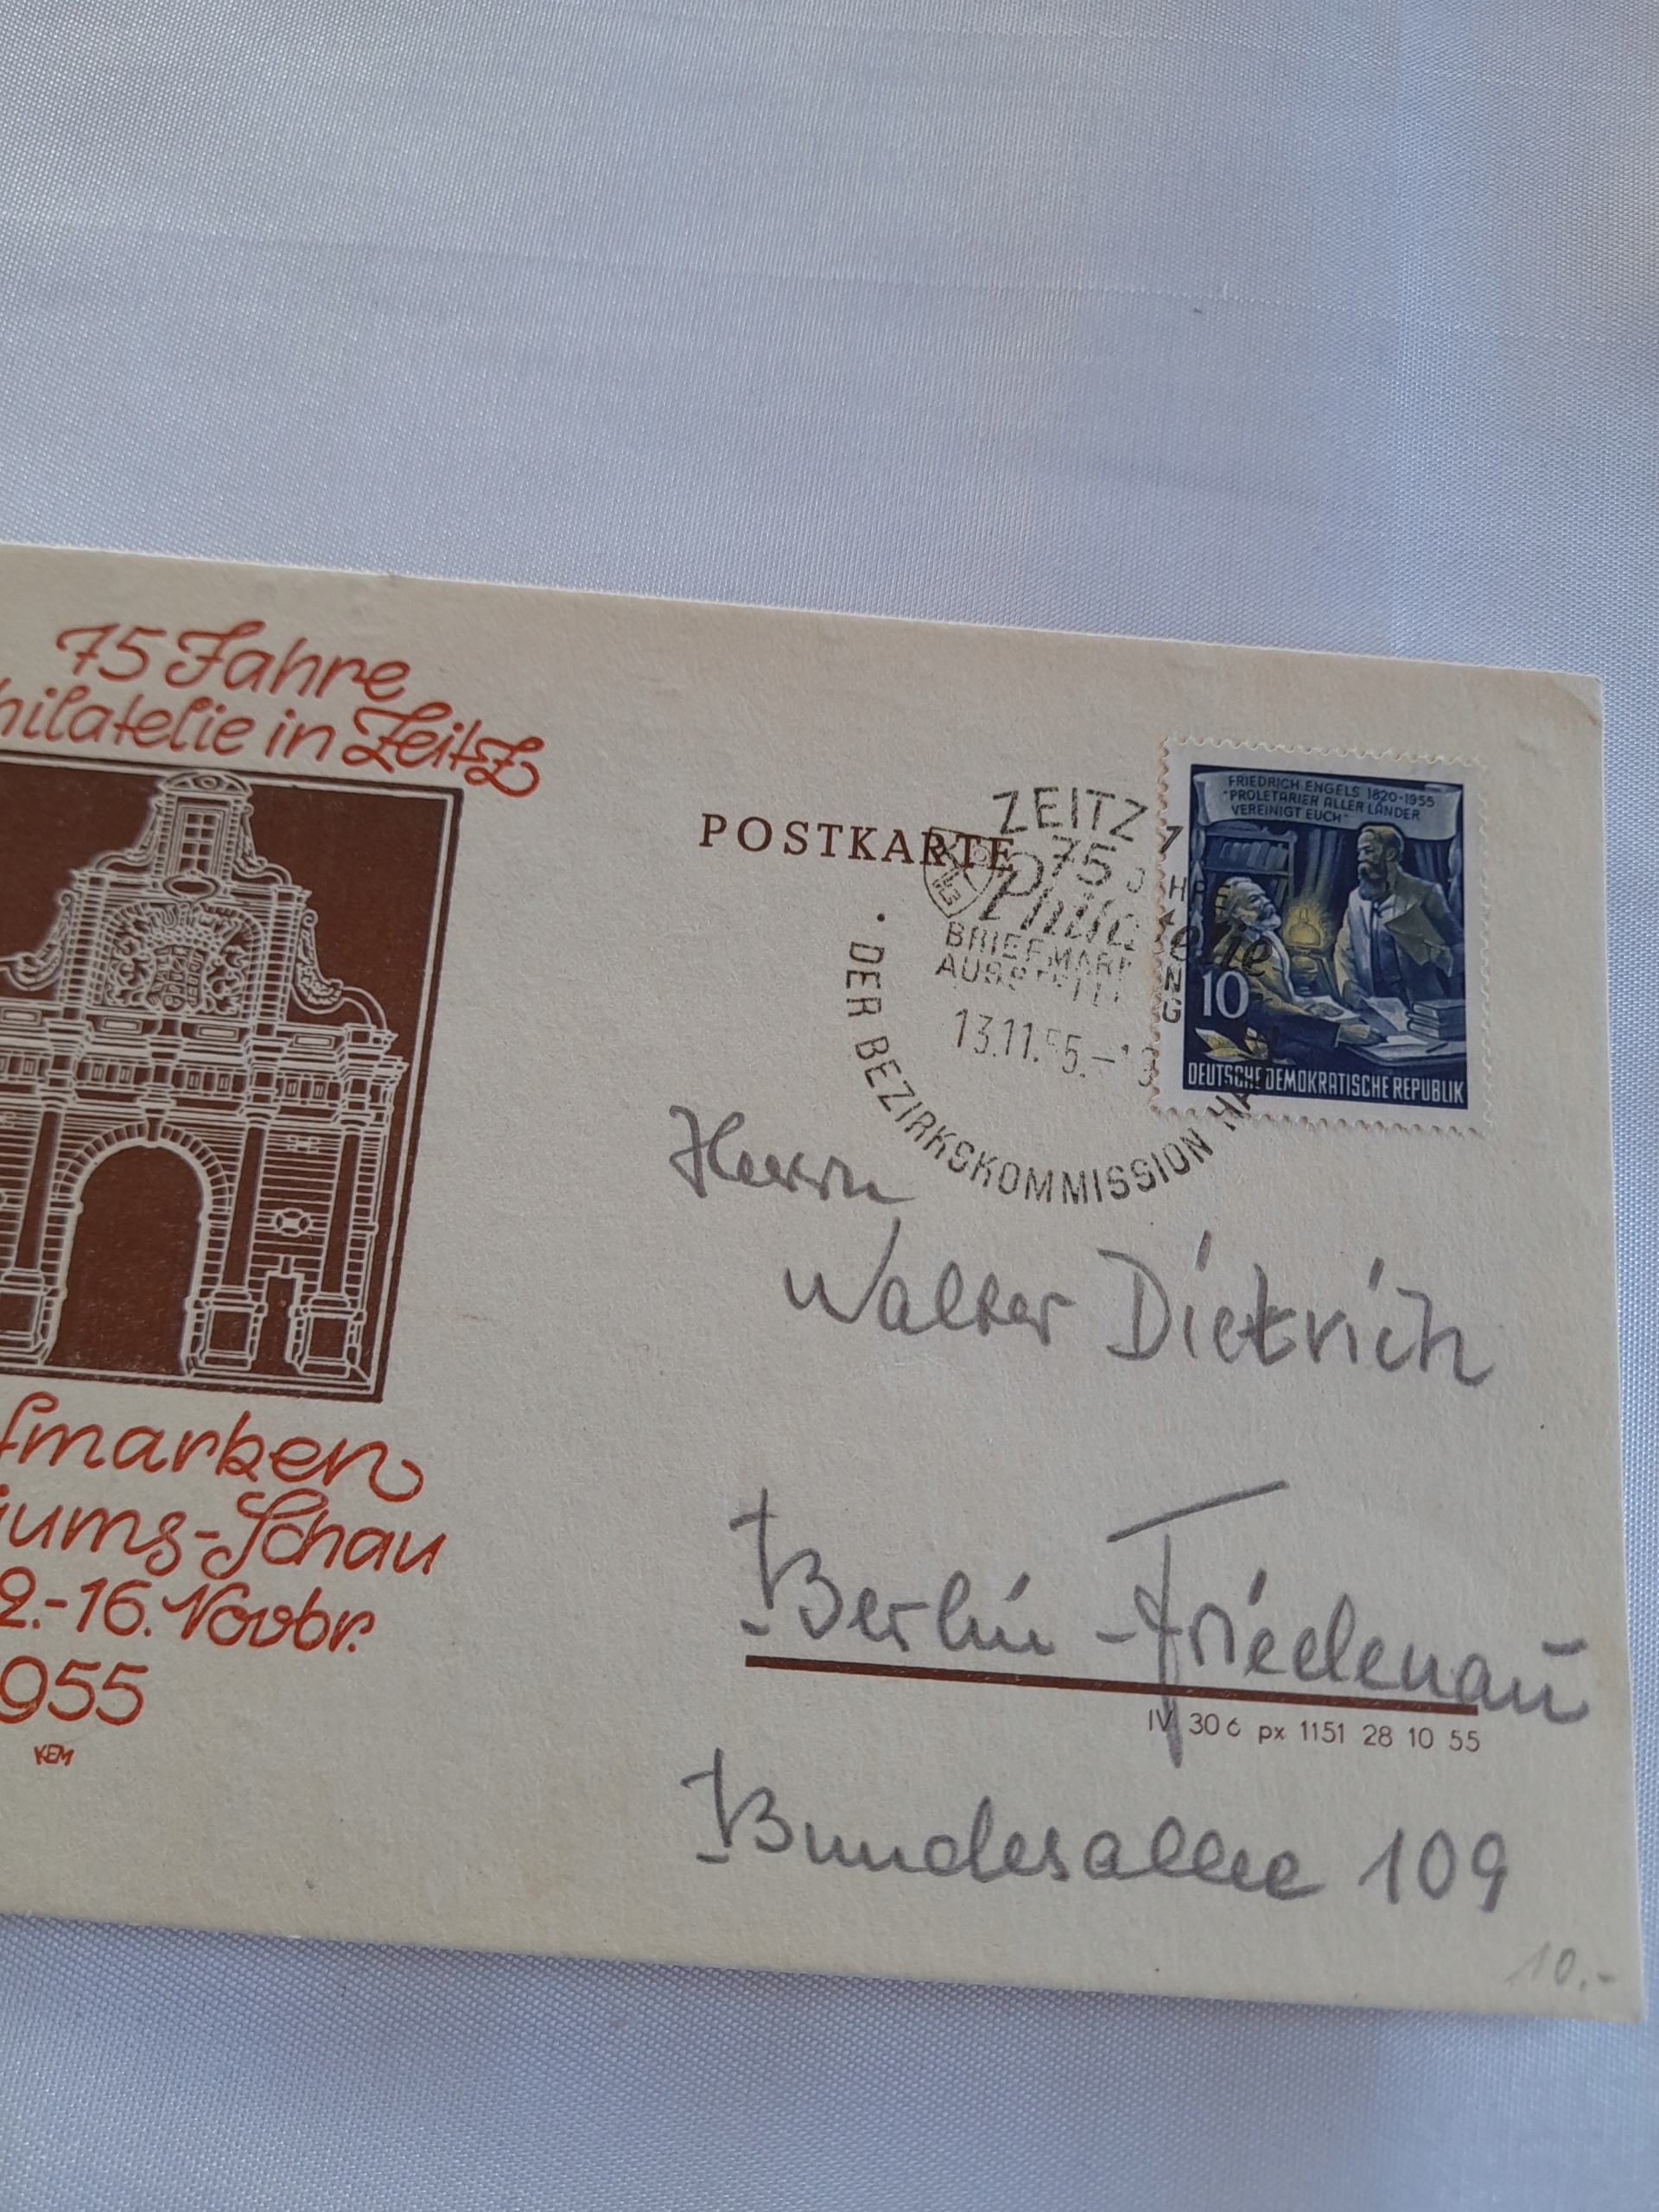 75 Jahre
hilatelie in Zeitz
fmarken
iums-Schau
2.-16. Novbr.
955
KEM
POSTKARTE
ZEITZ 1
75 JAHRE
Philatelie
BRIEFMARKEN
AUSSTELLUNG
13.11.55.-18
· DER BEZIRKSKOMMISSION HALLE
FRIEDRICH ENGELS 1820-1955
"PROLETARIER ALLER LÄNDER
VEREINIGT EUCH"
10
DEUTSCHE DEMOKRATISCHE REPUBLIK
Herrn
Walter Dietrich
Berlin-Friedenau
IV 306 px 1151 28 10 55
Bundesallee 109
10.-